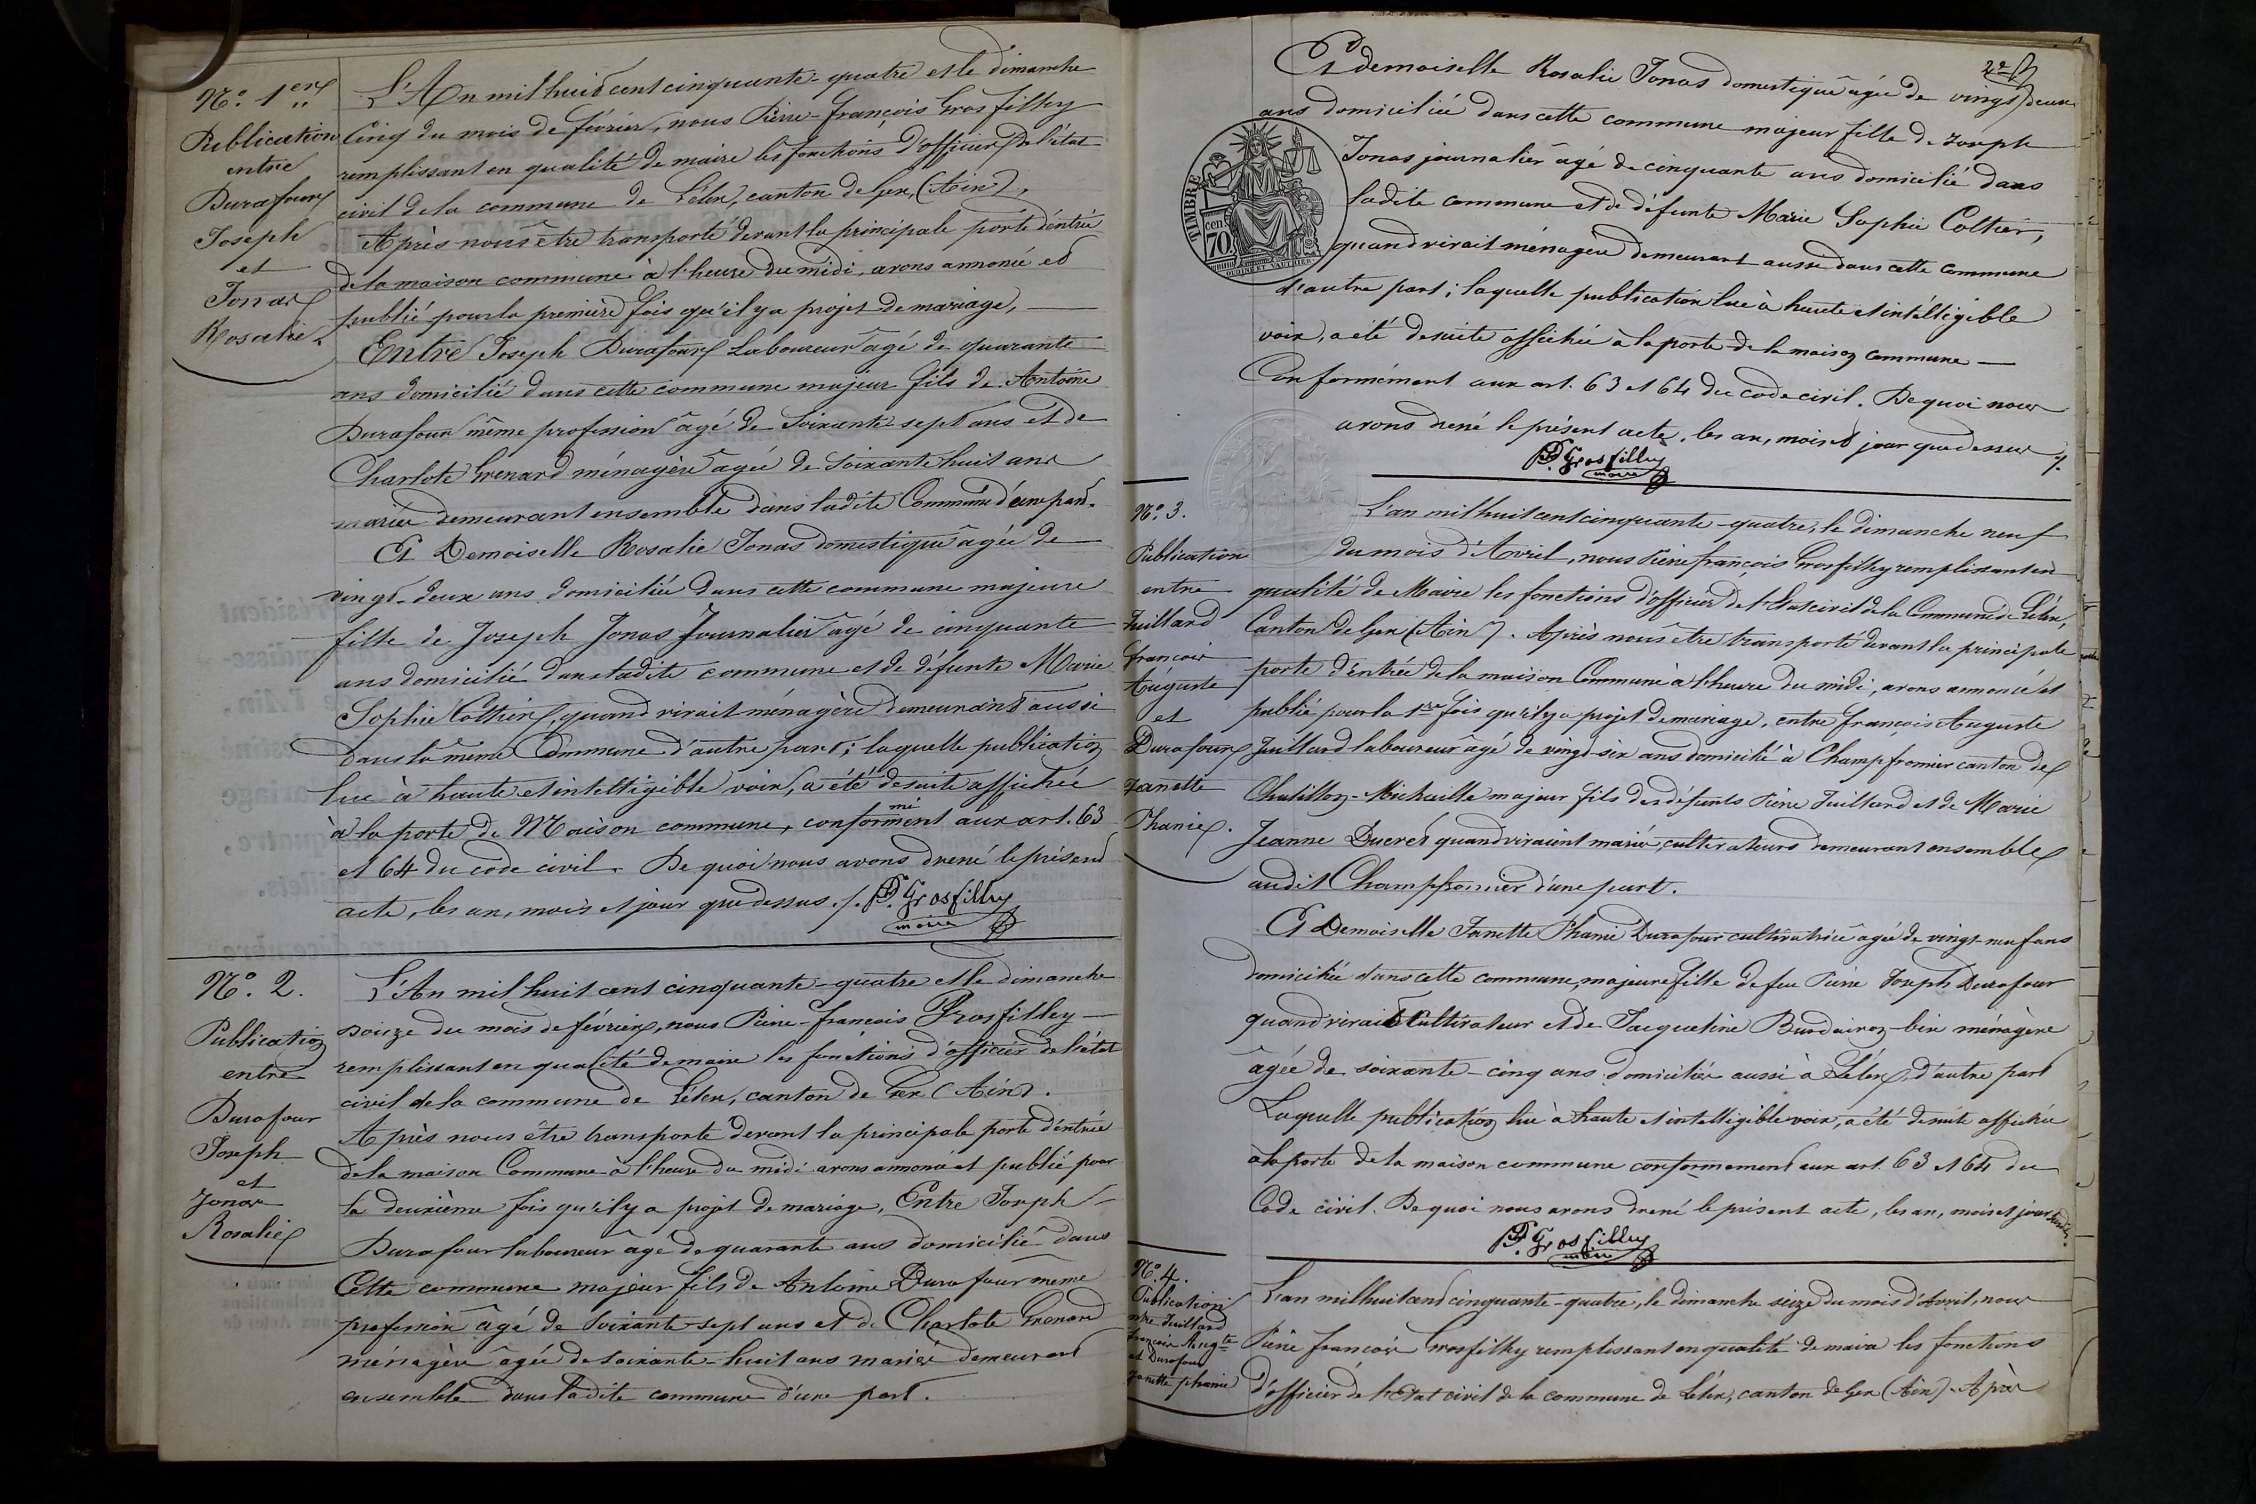 N.o 1er
Publication
entre
Durafour
Joseph
et
Jonas
Rosalie.
L'An mil huit cent cinquante-quatre et le dimanche
Cinq du mois de février, nous Pierre-François Grosfilley
remplissant en qualité de maire les fonctions d'officier de l'état
civil de la commune de Lélex, canton de Gex, (Ain),
Après nous être transporté devant la principale porte d'entrée
de la maison commune à l'heure du midi, avons annoncé et
publié pour la première fois qu'il y a projet de mariage,
Entre Joseph Durafour Laboureur âgé de quarante
ans domicilié dans cette commune majeur fils de Antoine
Durafour même profession âgé de Soixante-sept ans et de
Charlote Grenard ménagère âgée de Soixante huit ans
mariés demeurant ensemble dans ladite Commune d'une part.
Et Demoiselle Rosalie Jonas domestique âgée de
vingt-deux ans domiciliée dans cette commune majeure
fille de Joseph Jonas Journalier âgé de cinquante
ans domicilié dans ladite commune et de défunte Marie
Sophie Coltier, quand vivait ménagère demeurant aussi
dans la même Commune d'autre part; laquelle publication
lue à haute et intelligible voix, a été desuite affichée
à la porte de Maison commune, conformément aux art. 63
et 64 du code civil. De quoi nous avons drené le présent
acte, les an, mois et jour que dessus ./. PF. Grosfilley
maire
N.o 2.
Publication
entre
Durafour
Joseph
et
Jonas
Rosalie
L'An mil huit cent cinquante-quatre et le dimanche
douze du mois de février, nous Pierre-François Grosfilley
remplissant en qualité de maire les fonctions d'officier de l'état
civil de la commune de Lélex, canton de Gex (Ain).
Après nous être transporté devant la principale porte d'entrée
de la maison Commune à l'heure du midi avons annoncé et publié pour
la deuxième fois qu'il y a projet de mariage, Entre Joseph
Durafour laboureur âgé de quarante ans domicilié dans
Cette commune majeur fils de Antoine Durafour même
profession âgé de Soixante-sept ans et de Charlote Grenard
ménagère âgée de soixante-huit ans mariés demeurant
ensemble dans ladite commune d'une part.
2e f
Et demoiselle Rosalie Jonas domestique âgée de vingt deux
ans domiciliée dans cette commune majeur fille de Joseph
Jonas journalier âgé de cinquante ans domicilié dans
ladite commune et de défunte Marie Sophie Coltier,
quand vivait ménagère demeurant aussi dans cette commune
d'autre part; laquelle publication lue à haute et intelligible
voix, a été desuite affichée à la porte de la maison commune
Conformément aux art. 63 et 64 du code civil. De quoi nous
avons drené le présent acte, les an, mois et jour que dessus ./.
PF. Grosfilley
maire
TIMBRE
cen.
70
OUDINE ET VAUTHIER
N.o 3.
Publication
entre
Juilland
françois
Auguste
et
Durafour
Janette
Phanie.
L'an mil huit cent cinquante-quatre, le dimanche neuf
du mois d'Avril, nous Pierre françois Grosfilley remplissant en
qualité de Maire les fonctions d'officier de l'Etat civil de la Commune de Lélex,
Canton de Gex (Ain). Après nous être transporté devant la principale
porte d'entrée de la maison Commune à l'heure du midi, avons annoncé et
publié pour la 1re fois qu'il y a projet de mariage, entre françois Auguste
Juilland laboureur âgé de vingt-six ans domicilié à Champfromier canton de
Chatillon-Michaille majeur fils des défunts Pierre Juilland et de Marie
Jeanne Ducret quand vivaient mariés, cultivateurs demeurant ensemble
audit Champfromier d'une part.
Et Demoiselle Janette Phanie Durafour cultivatrice âgée de vingt-neuf ans
domiciliée dans cette commune, majeure fille de feu Pierre Joseph Durafour
quand vivait Cultivateur et de Jacqueline ménagère
âgée de soixante-cinq ans domiciliée aussi à Lélex, d'autre part
Laquelle publication lue à haute et intelligible voix, a été desuite affichée
à la porte de la maison commune conformement aux art. 63 et 64 du
Code civil. De quoi nous avons drené le présent acte, les an, mois et jour
PF. Grosfilley
maire
N.o 4.
Publication
entre Juilland
françois Augte
et Durafour
Janette phanie
L'an mil huit cent cinquante-quatre, le dimanche seize du mois d'Avril, nous
Pierre françois Grosfilley remplissant en qualité de maire les fonctions
d'officier de l'Etat civil de la commune de Lélex, canton de Gex (Ain). Après